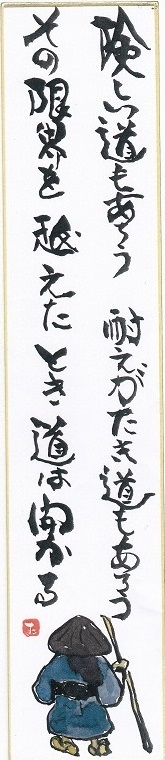 険しい道もあろう 耐えがたき道もあろう
その限界を越えたとき道は開かる
た